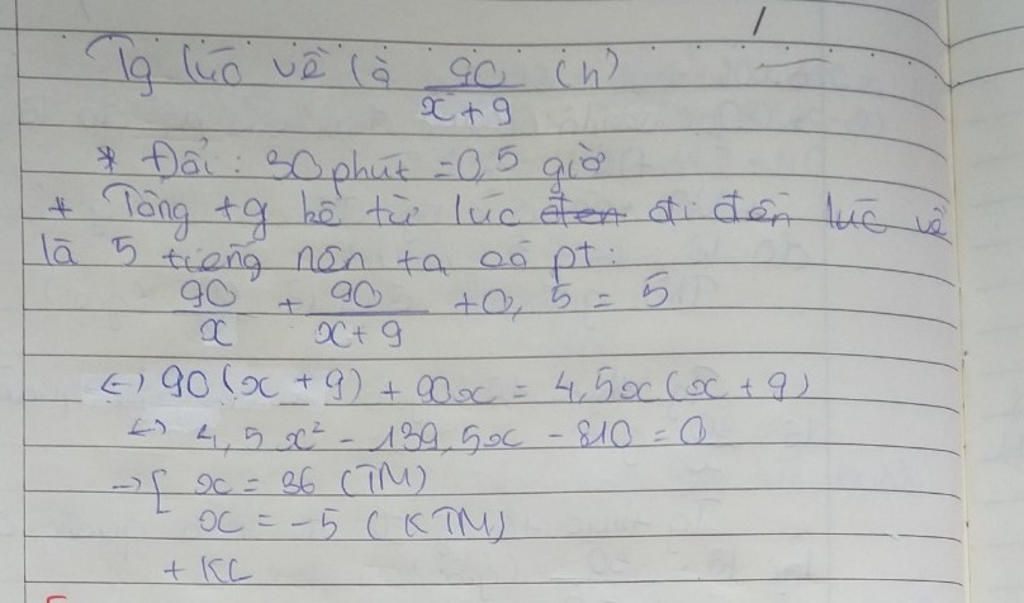 Tg lúc về là 90/(x+9) (h)
* Đổi: 30 phút = 0,5 giờ
* Tổng tg kể từ lúc đen đi đến lúc về
là 5 tiếng nên ta có pt:
90/x + 90/(x+9) + 0,5 = 5
<-> 90(x + 9) + 90x = 4,5x(x + 9)
<-> 4,5x² - 139,5x - 810 = 0
-> [ x = 36 (TM)
x = -5 (KTM)
+ KL